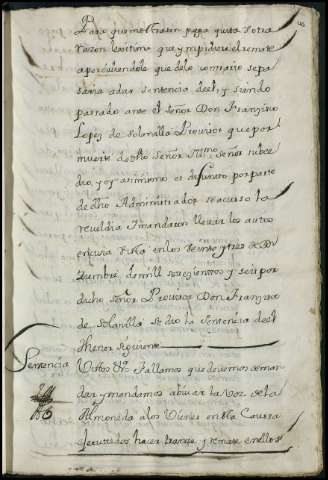 Para que mostrasen paga quita o otra
razon lexitima que ympidiere el remate
apercibiendole que de lo contrario se pa
saria a dar sentencia de el, y siendo
passado ante el señor Don Françisco
Lopez de Solanilla Provisor que por
muerte de dho Señor Illmo. Señor
dio, y oy asimismo es defunto por parte
de dho Administrador se accuso la
reveldia y mandaron llevar los autos
en cuia vista en los veinte y tres de
tiembre de mill setezientos y seis por
dicho Señor Provisor Don Françisco
de Solanilla se dio la sentencia de el
thenor siguiente
Sentencia
Vistos &a. Fallamos que devemos de man
dar y mandamos abivar la voz de la
Almoneda a los Vienes en esta Caussa
executados, hacer tranze, y remate en ellos